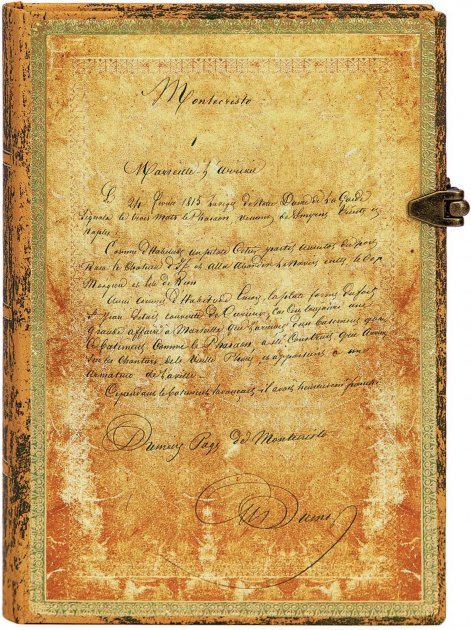 Montecristo
1
Marseille L'arrivée
Le 24 février 1815 la vigie de Notre Dame de la Garde
Signala le trois mats le Pharaon venant de Smyrne Trieste et
Naples
Comme d'habitude un pilote Cotier partit aussitot du port
Rasa le Chateau d'If et alla aborder le navire entre le Cap
Morgiou et l'ile de Rion
Aussi comme d'habitude encore la plate forme du fort
St Jean s'etait couverte de Curieux, car c'est toujours une
Grande affaire a Marseille que l'arrivée d'un batiment quand
ce batiment comme le Pharaon a été Construit
Sur les Chantiers de la Vieille Phocée et appartient a un
Armateur de la ville
Cependant ce batiment s'avancait, il avait heureusement franchi
de Montecristo
Dumas